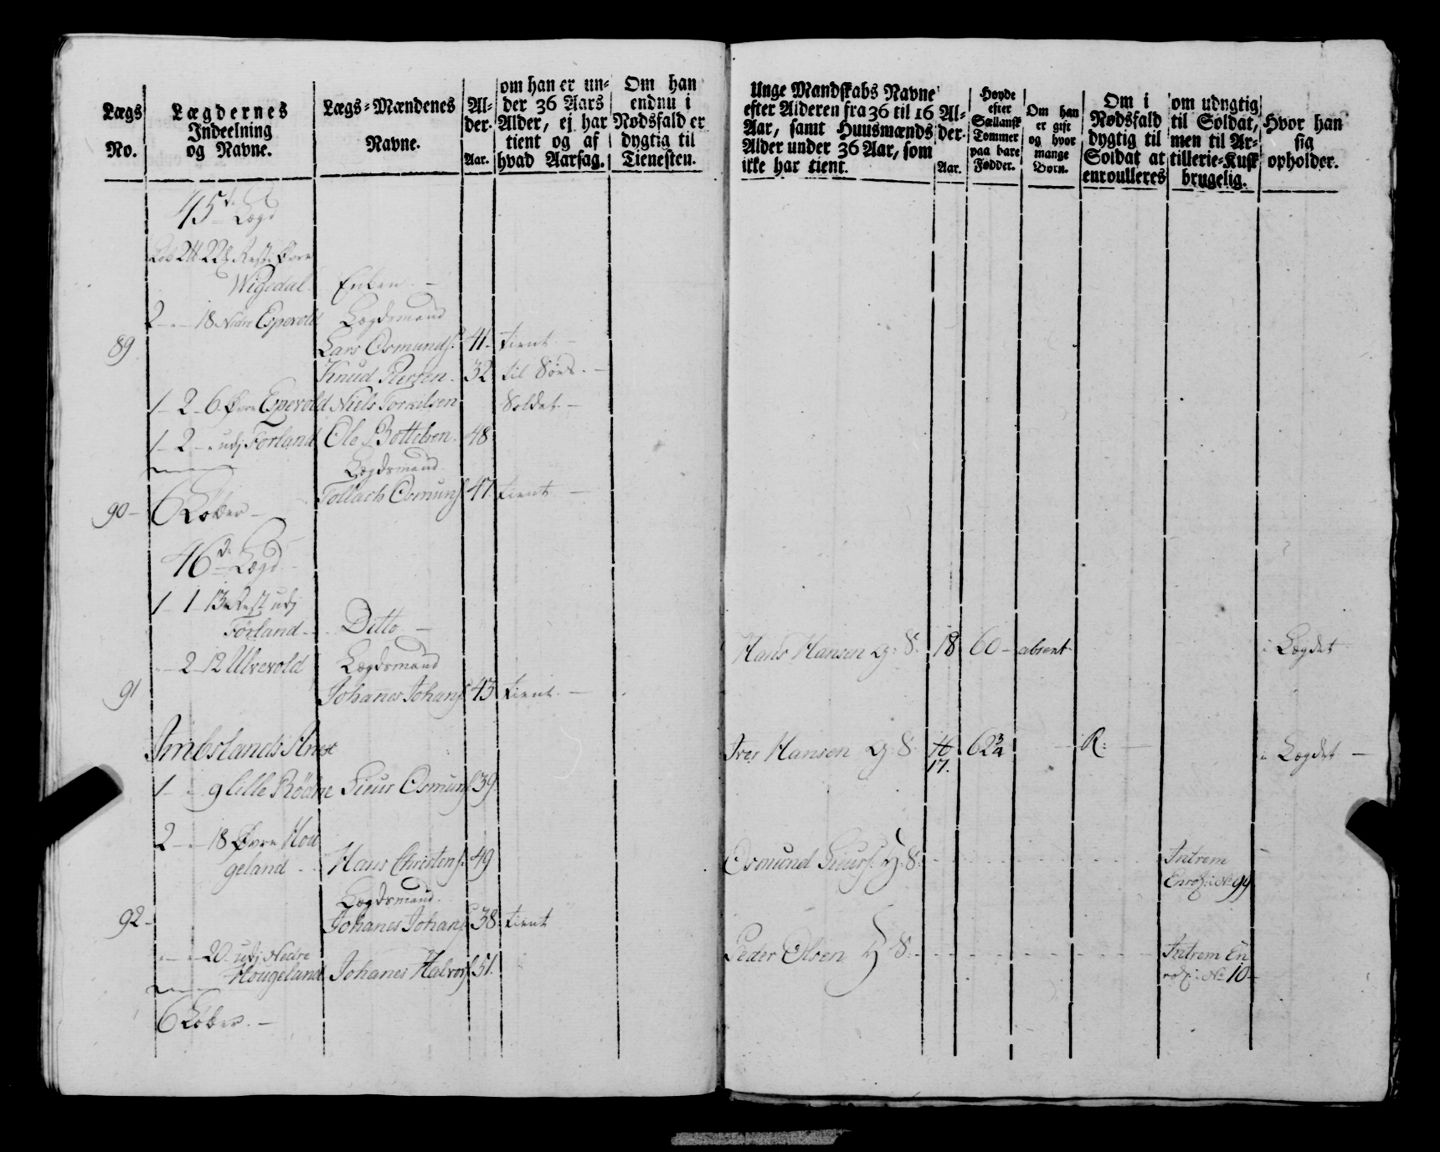 Lægs
No.
Lægdernes
Indeelning
og Navne.
Lægs-Mændenes
Navne.
Al-
der.
Aar.
om han er un-
der 36 Aars
Alder, ej har
tient og af
hvad Aarsag.
Om han
endnu i
Nødsfald er
dygtig til
Tienesten.
45de Lægd
22 Rest Øvre
Wigedal Enken —
2 - - 18 Nedre Espevold Lægdsmand
89 Lars Osmunds. 41. tient —
Knud Persen. 32 til Søes. —
1 - 2 - 6 Øvre Espevold Niels Torkelsen Soldat —
1 - 2 - - udj Førland Ole Bottelsen. 48
Lægdsmand
90 — 6 Løber — Tollach Osmuns. 47 tient —
46de Lægd
1 - 1 - 13 Rest udj
Førland — Ditto —
- - 2 12 Ulvevold Lægdsmand
91 Johanes Johans. 43 tient —
1 - - 9 lille Rødne Siur Osmuns. 39
2 - - 18 Øvre Hou
geland - Hans Christens. 49
Lægdsmand.
92 - Johanes Johans. 38 tient
- - - 20 udj Nedre
Hougeland Johanes Halvors. 51.
6 Løber. —
Unge Mandskabs Navne
efter Alderen fra 36 til 16
Aar, samt Huusmænds
Alder under 36 Aar, som
ikke har tient.
Al-
der.
Aar.
Høyde
efter
Sællansk
Tommer
paa bare
Fødder.
Om han
er gift
og hvor
mange
Børn.
Om i
Nødsfald
dygtig til
Soldat at
enroulleres
om udygtig
til Soldat,
men til Ar-
tillerie-Kusk
brugelig.
Hvor han
sig
opholder.
Hans Hansen g: S: 18 60 — absent i Lægdet
Iver Hansen g: S: 17. 62 3/4 R: — i Lægdet —
Osmund Siurs. g: S: Extrem
No 99
Peder Olsen g: S: Extrem En
No 10 -